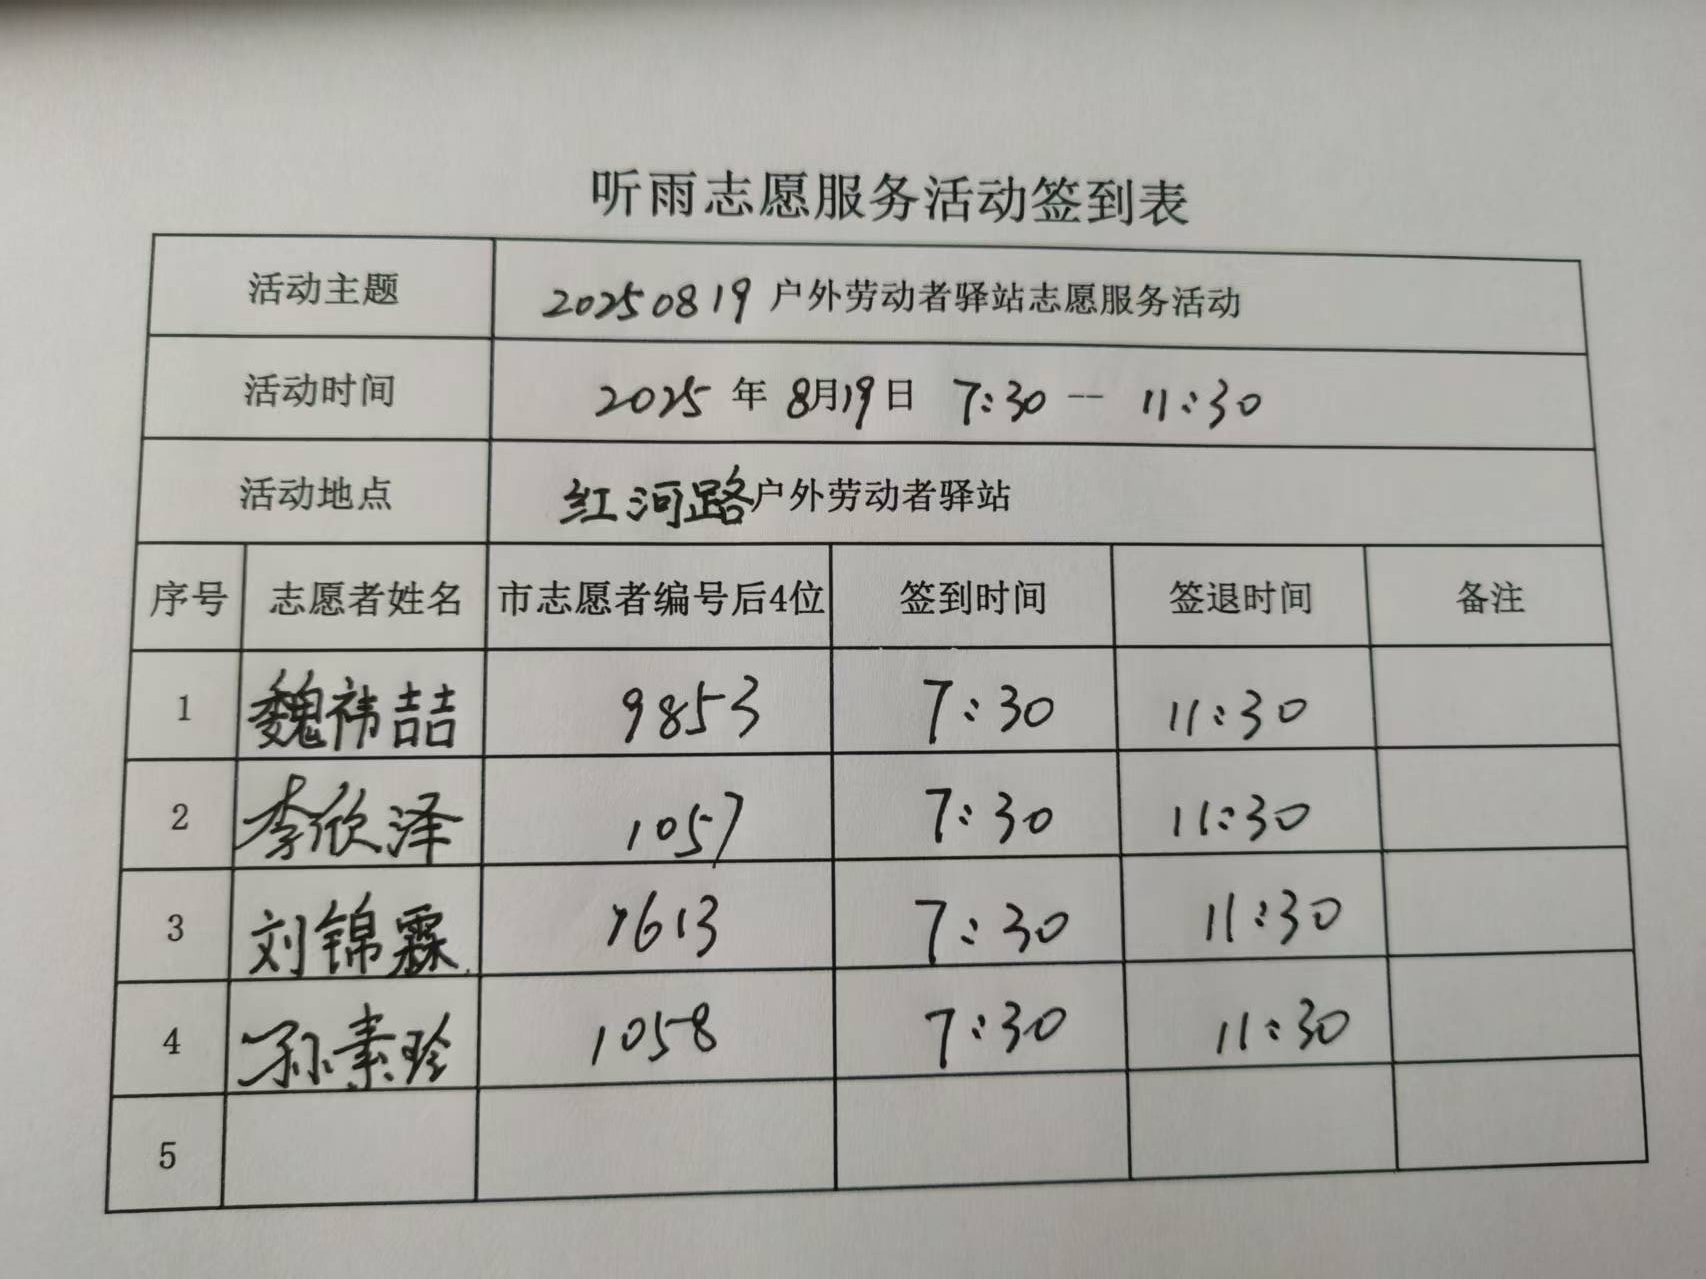 听雨志愿服务活动签到表
活动主题 20250819户外劳动者驿站志愿服务活动
活动时间 2025年8月19日 7:30--11:30
活动地点 红河路户外劳动者驿站
序号 志愿者姓名 市志愿者编号后4位 签到时间 签退时间 备注
1 魏祎喆 9853 7:30 11:30
2 李欣泽 1057 7:30 11:30
3 刘锦霖 7613 7:30 11:30
4 孙素玲 1058 7:30 11:30
5